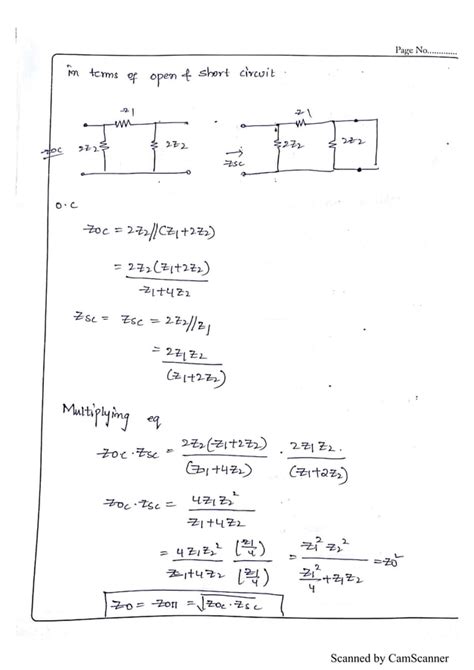 Page No............
in terms of open & short circuit.
Z1
Z1
ZOC
2Z2
2Z2
ZSC
2Z2
2Z2
O.C
ZOC = 2Z2//(Z1+2Z2)
= 2Z2(Z1+2Z2) / Z1+4Z2
ZSC = ZSC = 2Z2//Z1
= 2Z1Z2 / (Z1+2Z2)
Multiplying eq
ZOC·ZSC = 2Z2(Z1+2Z2) / (Z1+4Z2) · 2Z1Z2. / (Z1+2Z2)
ZOC·ZSC = 4Z1Z2² / Z1+4Z2
= 4Z1Z2² / Z1+4Z2 (Z1/4) / (Z1/4) = Z1²Z2² / Z1²/4 + Z1Z2 = Z0²
Z0 = Z0π = √ZOC·ZSC
Scanned by CamScanner